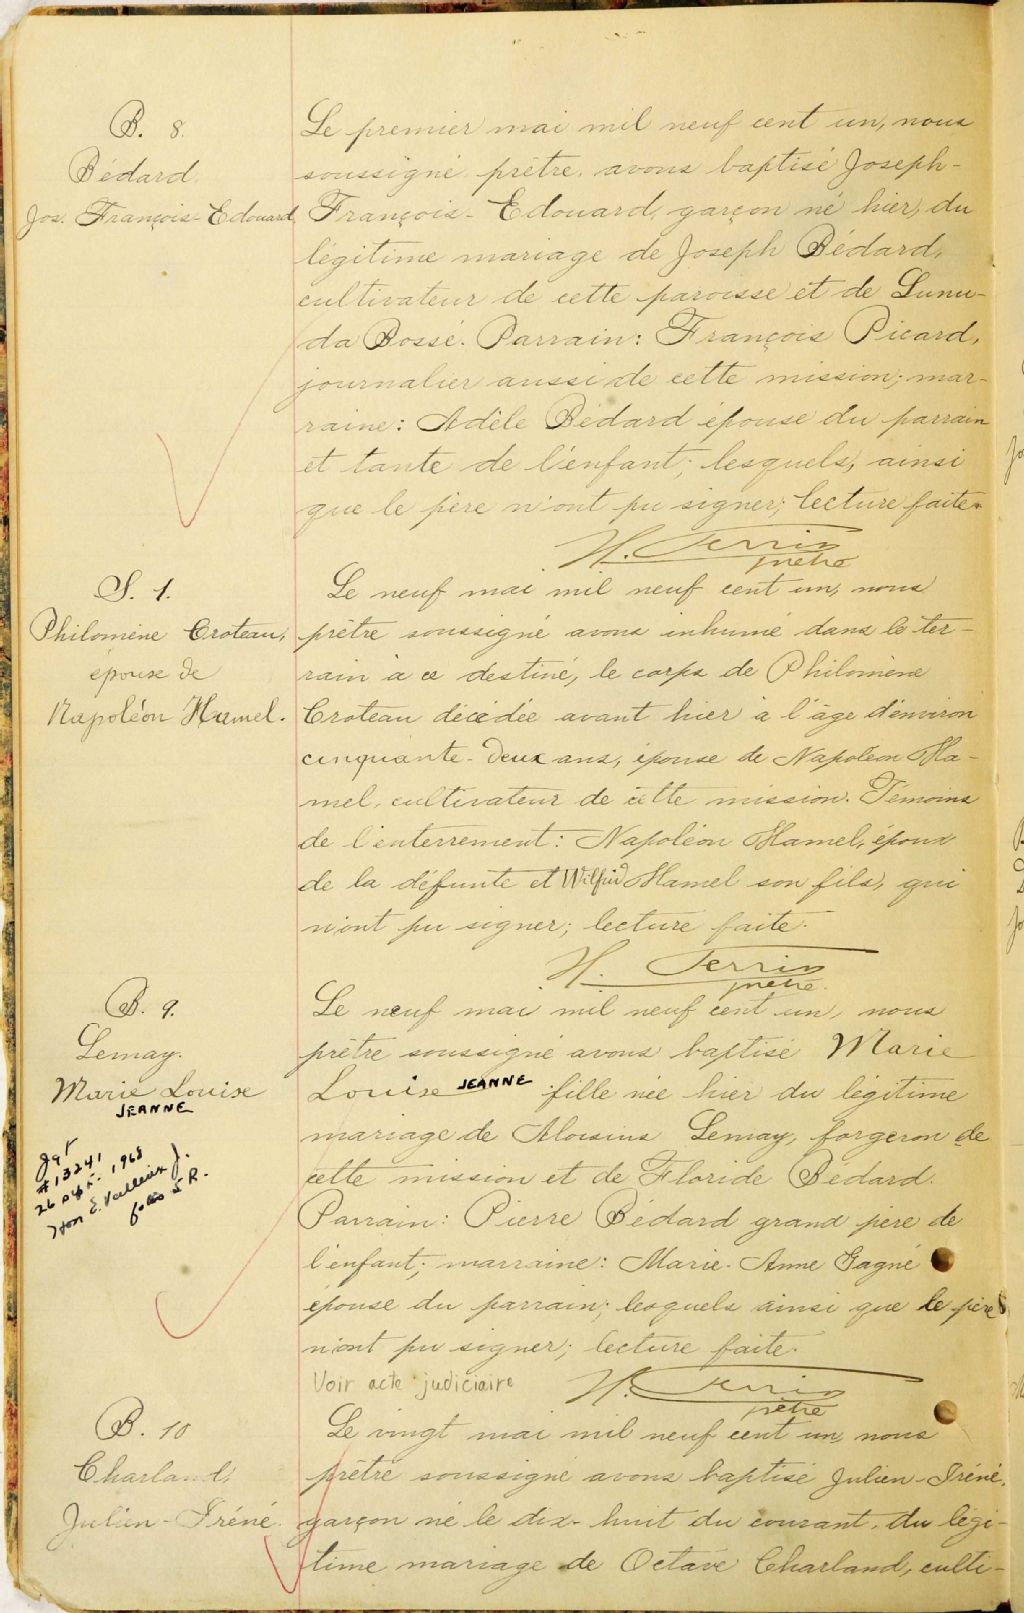 B. 8.
Bédard
Jos. François-Edouard
Le premier mai mil neuf cent un, nous
soussigné prêtre, avons baptisé Joseph-
François-Edouard, garçon né hier, du
légitime mariage de Joseph Bédard,
cultivateur de cette paroisse et de Lumu-
da Bossé. Parrain: François Picard,
journalier aussi de cette mission; mar-
raine: Adèle Bédard épouse du parrain
et tante de l'enfant; lesquels, ainsi
que le père n'ont pu signer; lecture faite.
H. Perrin
prêtre
S. 1.
Philomène Croteau,
épouse de
Napoléon Hamel.
Le neuf mai mil neuf cent un, nous
prêtre soussigné avons inhumé dans le ter-
rain à ce destiné, le corps de Philomène
Croteau décédée avant hier à l'âge d'environ
cinquante-deux ans, épouse de Napoléon Ha-
mel, cultivateur de cette mission. Témoins
de l'enterrement: Napoléon Hamel, époux
de la défunte et Wilfrid Hamel son fils, qui
n'ont pu signer; lecture faite.
H. Perrin
prêtre
B. 9.
Lemay.
Marie Louise
JEANNE
#13241
26 1968
Hon E.
Le neuf mai mil neuf cent un, nous
prêtre soussigné avons baptisé Marie
Louise JEANNE fille née hier du légitime
mariage de Aloisius Lemay, forgeron de
cette mission et de Floride Bédard.
Parrain: Pierre Bédard grand père de
l'enfant; marraine: Marie-Anne Gagné
épouse du parrain; lesquels ainsi que le père
n'ont pu signer; lecture faite.
Voir acte judiciaire
H. Perrin
prêtre
B. 10
Charland,
Julien-Iréné.
Le vingt mai mil neuf cent un, nous
prêtre soussigné avons baptisé Julien-Iréné,
garçon né le dix-huit du courant, du légi-
time mariage de Octave Charland, culti-